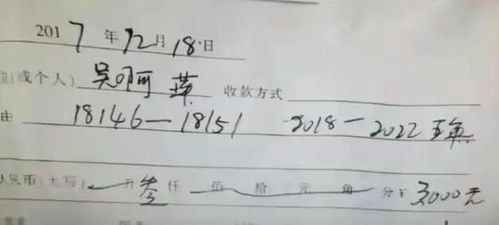 2017年12月18日
位(或个人) 吴阿英 收款方式
由 18146—18151 2018—2022 五年
人民币(大写) 万叁仟佰拾元角分¥ 3000元